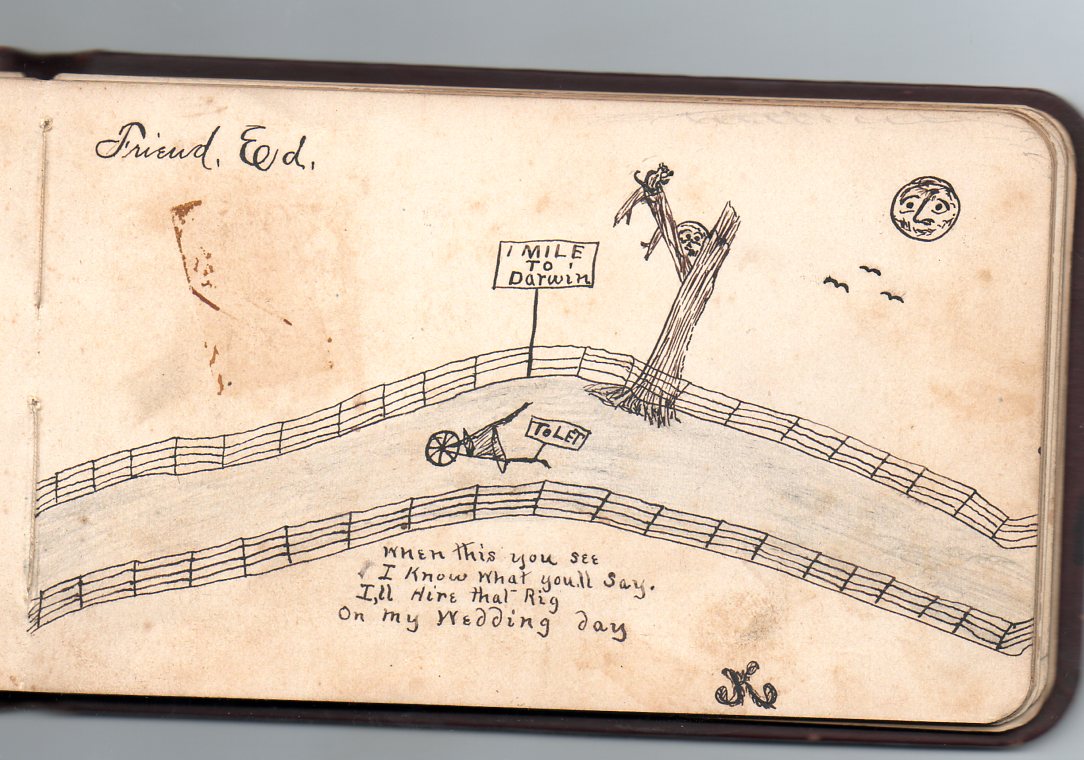 Friend, Ed.
1 MILE
TO
Darwin
TO LET
When this you see
I Know what you'll Say.
I,ll Hire that Rig
On my Wedding day
JK